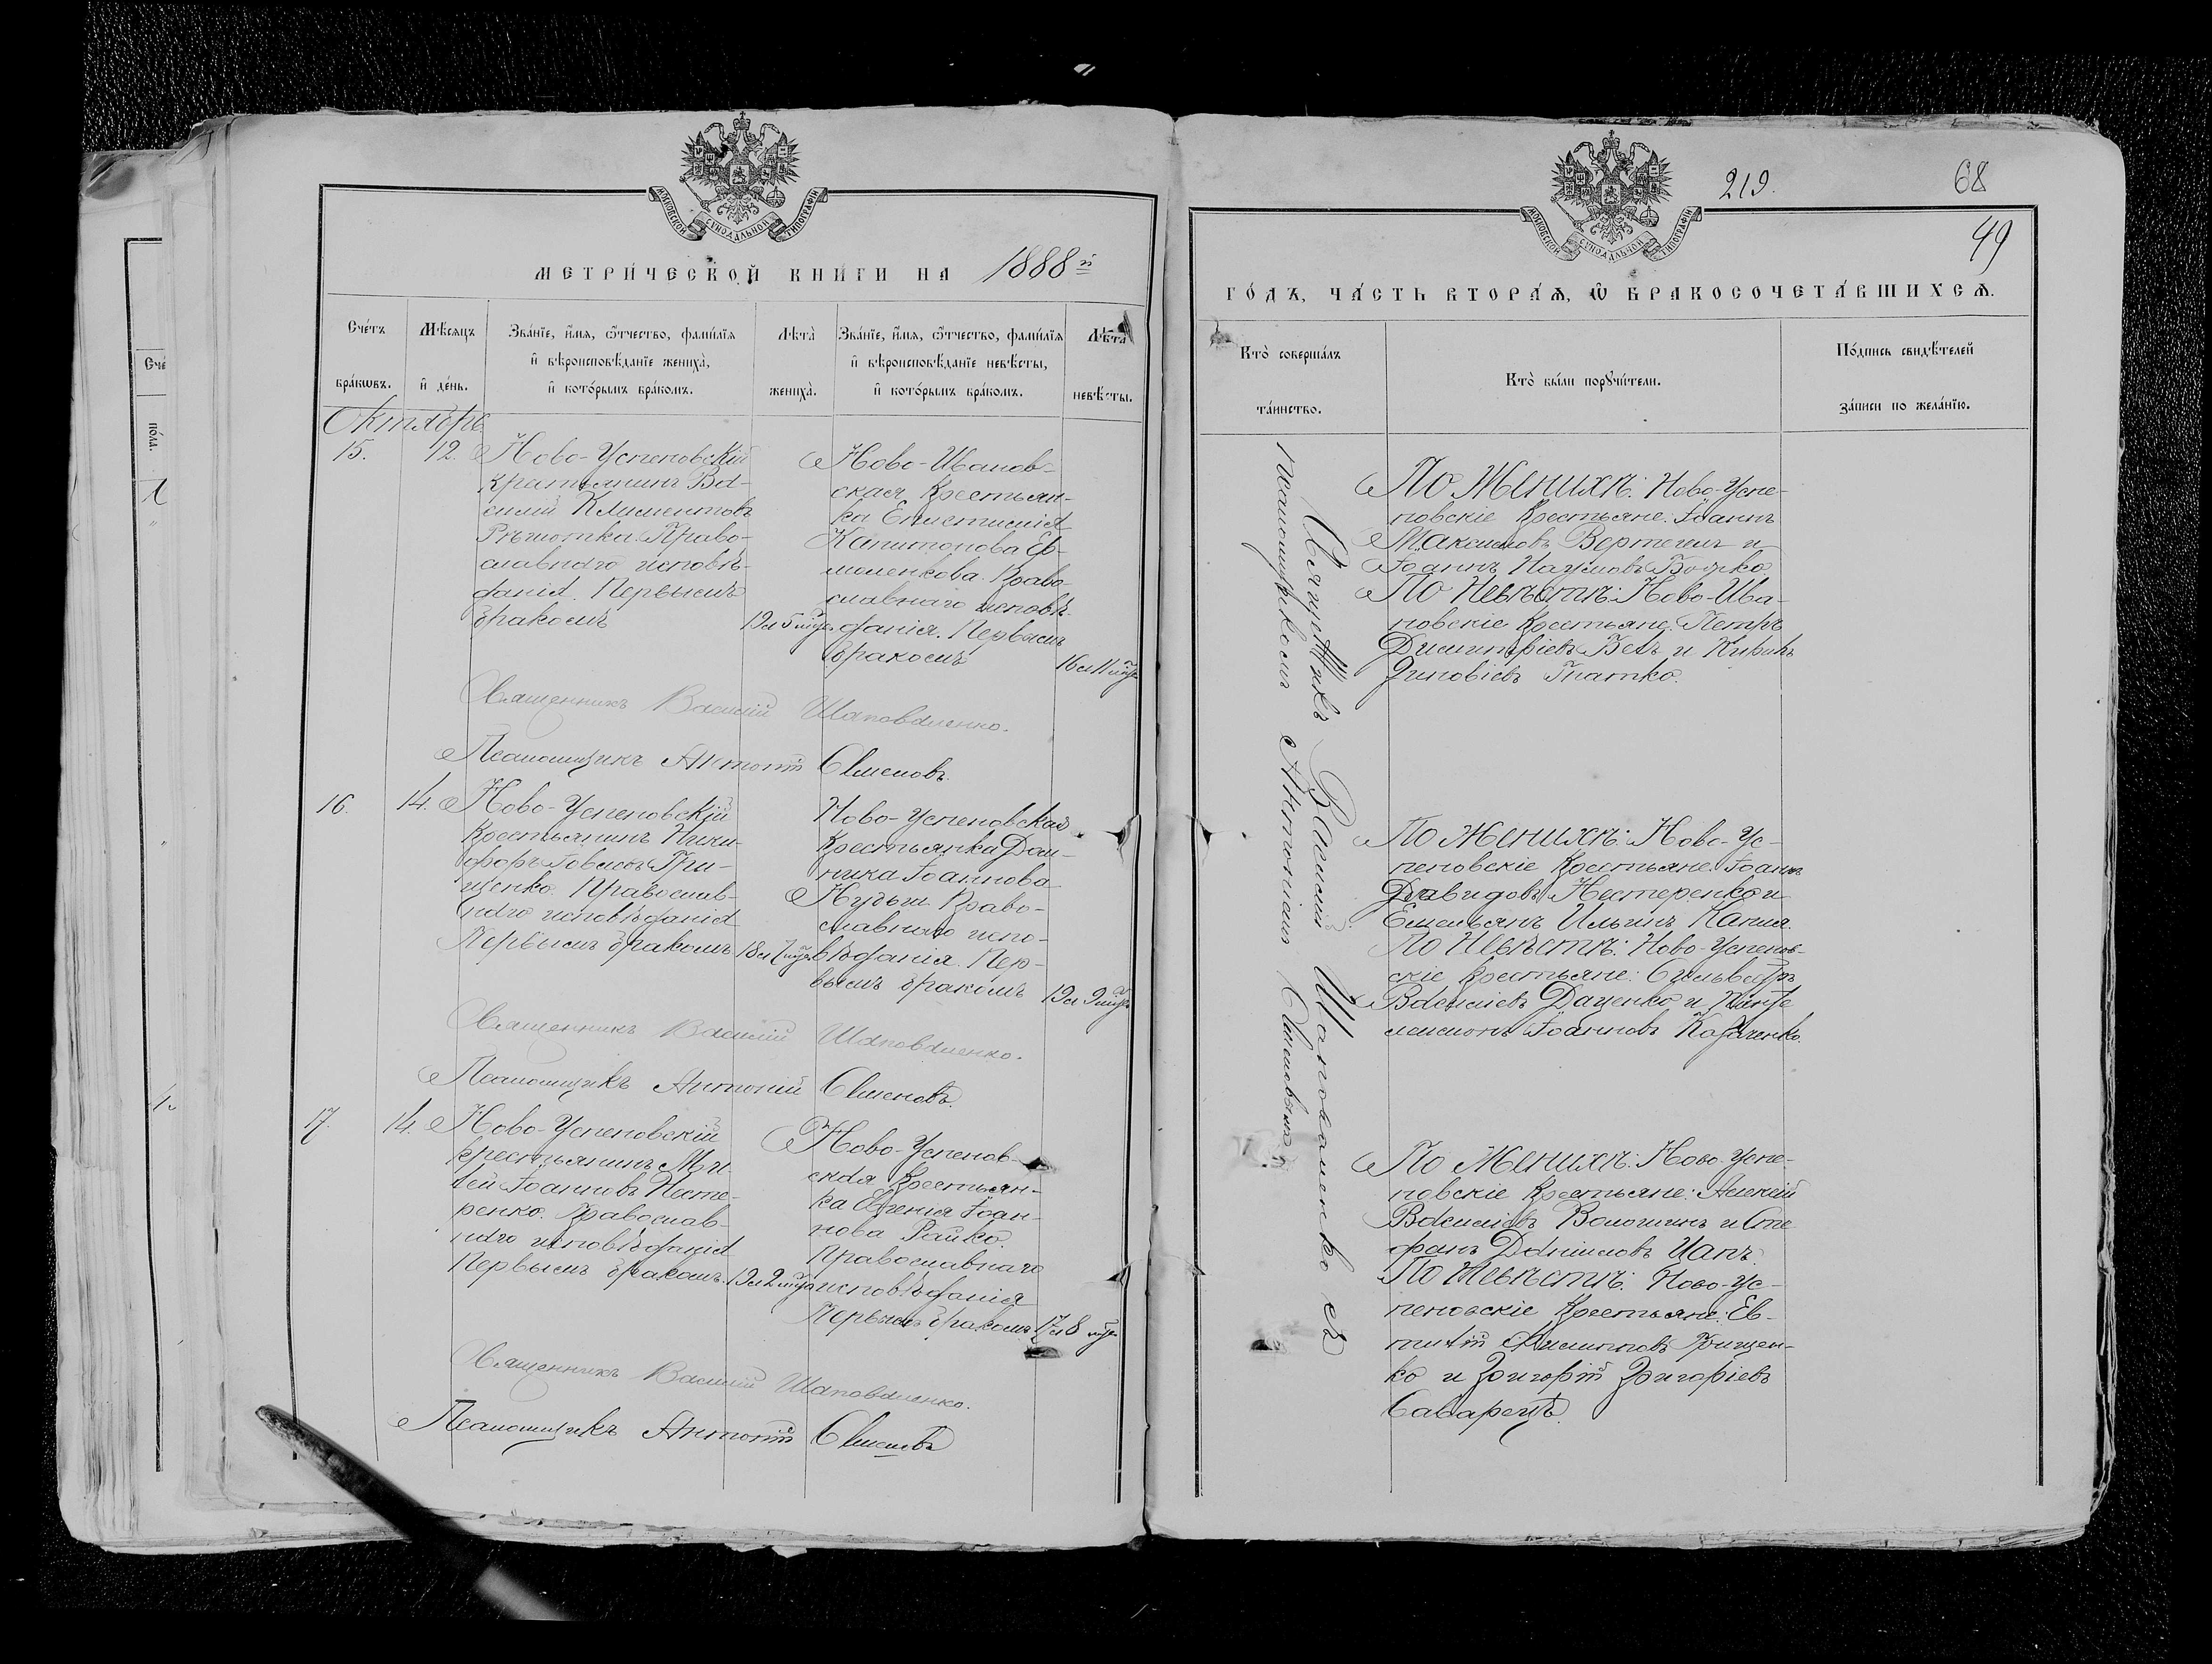 МОСКОВСКОЙ СѴНОДАЛЬНОЙ ТИПОГРАФІИ
МЕТРИЧЕСКОЙ КНИГИ НА 1888й
Счетъ браковъ.
Мѣсяцъ и день.
Званіе, имя, отчество, фамилія
и вѣроисповѣданіе жениха,
и которымъ бракомъ.
Лѣта жениха.
Званіе, имя, отчество, фамилія
и вѣроисповѣданіе невѣсты,
и которымъ бракомъ.
Лѣта невѣсты.
Октябрь
15.
12.
Ново-Успеновскій
Крестьянинъ Ва-
силій Климентовъ
Рѣшотка. Право-
славнаго исповѣ-
данія. Первымъ
бракомъ
19 л 5 мѣс.
Ново-Иванов-
ская Крестьян-
ка Епистимія
Капитонова Ев-
моленкова. Право-
славнаго исповѣ-
данія. Первымъ
бракомъ
16 л 11 мѣс.
Священникъ Василій Шаповаленко.
Псаломщикъ Антоній Семеновъ.
16.
14.
Ново-Успеновскій
Крестьянинъ Ники-
форъ Іовлевъ Гри-
щенко. Православ-
наго исповѣданія
Первымъ бракомъ
18 л 7 мѣс.
Ново-Успеновская
Крестьянка Дом-
ника Іоаннова
Право-
славнаго испо-
вѣданія. Пер-
вымъ бракомъ
19 л 9 мѣс.
Священникъ Василій Шаповаленко.
Псаломщикъ Антоній Семеновъ.
17.
14.
Ново-Успеновскій
крестьянинъ
Іоанновъ Несте-
ренко. Православ-
наго исповѣданія
Первымъ бракомъ.
19 л 2 мѣс.
Ново-Успенов-
ская Крестьян-
ка Евгенія Іоан-
нова Райко.
Православнаго
исповѣданія
Первымъ бракомъ
17 л 8 мѣс.
Священникъ Василій Шаповаленко.
Псаломщикъ Антоній Семеновъ
219.
68
49
МОСКОВСКОЙ СѴНОДАЛЬНОЙ ТИПОГРАФІИ
ГОДЪ, ЧАСТЬ ВТОРАЯ, Ѡ БРАКОСОЧЕТАВШИХСЯ.
Кто совершалъ таинство.
Кто были поручители.
Подпись свидѣтелей
записи по желанію.
Священникъ Василій Шаповаленко съ
псаломщикомъ Антоніемъ Семеновымъ
По Женихѣ: Ново-Успе-
новскіе Крестьяне: Іоаннъ
Максимовъ Вертегинъ и
Іоаннъ Наумовъ Божко
По Невѣстѣ: Ново-Ива-
новскіе Крестьяне: Петръ
Димитріевъ и Кирилъ
Зиновіевъ Гнатко.
По Женихѣ: Ново-Ус-
пеновскіе Крестьяне: Іоаннъ
Давидовъ Нестеренко и
Емельянъ Ильинъ Капша.
По Невѣстѣ: Ново-Успенов-
скіе Крестьяне: Сильвестръ
Васильевъ Даценко и Панте-
леимонъ Іоанновъ Козаченко.
По Женихѣ: Ново-Успе-
новскіе Крестьяне: Алексій
Васильевъ Волошинъ и Сте-
фанъ Даниловъ Цапъ.
По Невѣстѣ: Ново-Ус-
пеновскіе Крестьяне: Ев-
Филипповъ Грищен-
ко и Григорій Григоріевъ
Саварецъ.